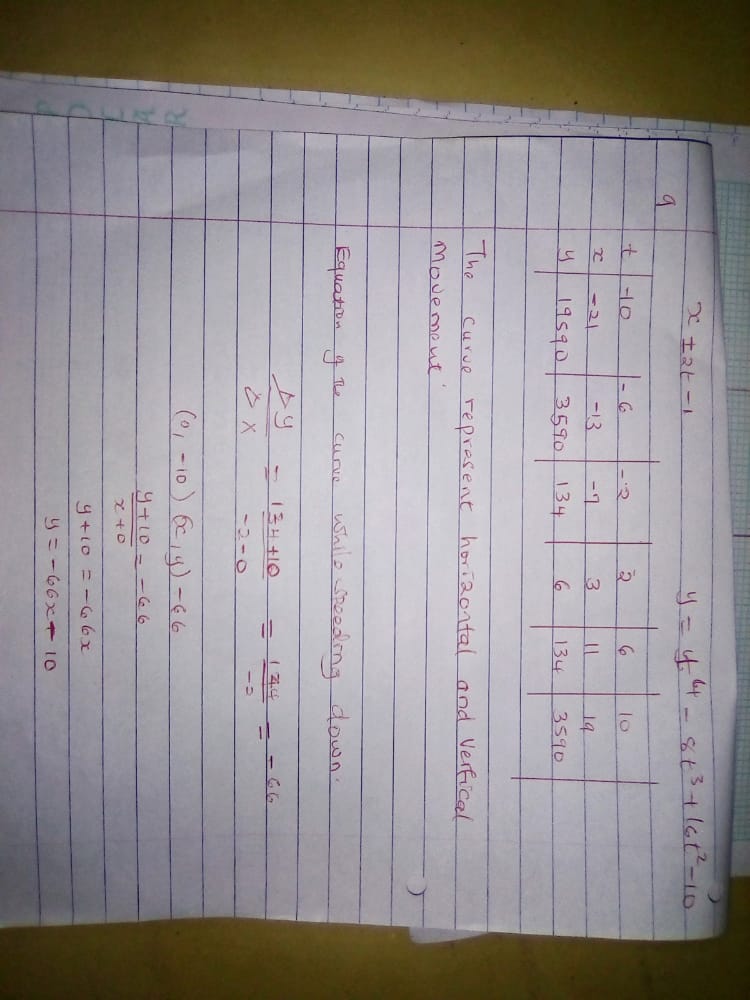 x = 2t - 1    y = t⁴ - 8t³ + 16t² - 10
9
t | -10 | -6 | -2 | 2 | 6 | 10
x | -21 | -13 | -7 | 3 | 11 | 19
y | 19590 | 3590 | 134 | 6 | 134 | 3590
The curve represent horizontal and vertical
movement.
Equation of the curve while speeding down.
Δy/Δx = (134+10)/(-2-0) = 134/-2 = -66
(0, -10) (x, y) -66
(y+10)/(x+0) = -66
y+10 = -66x
y = -66x - 10